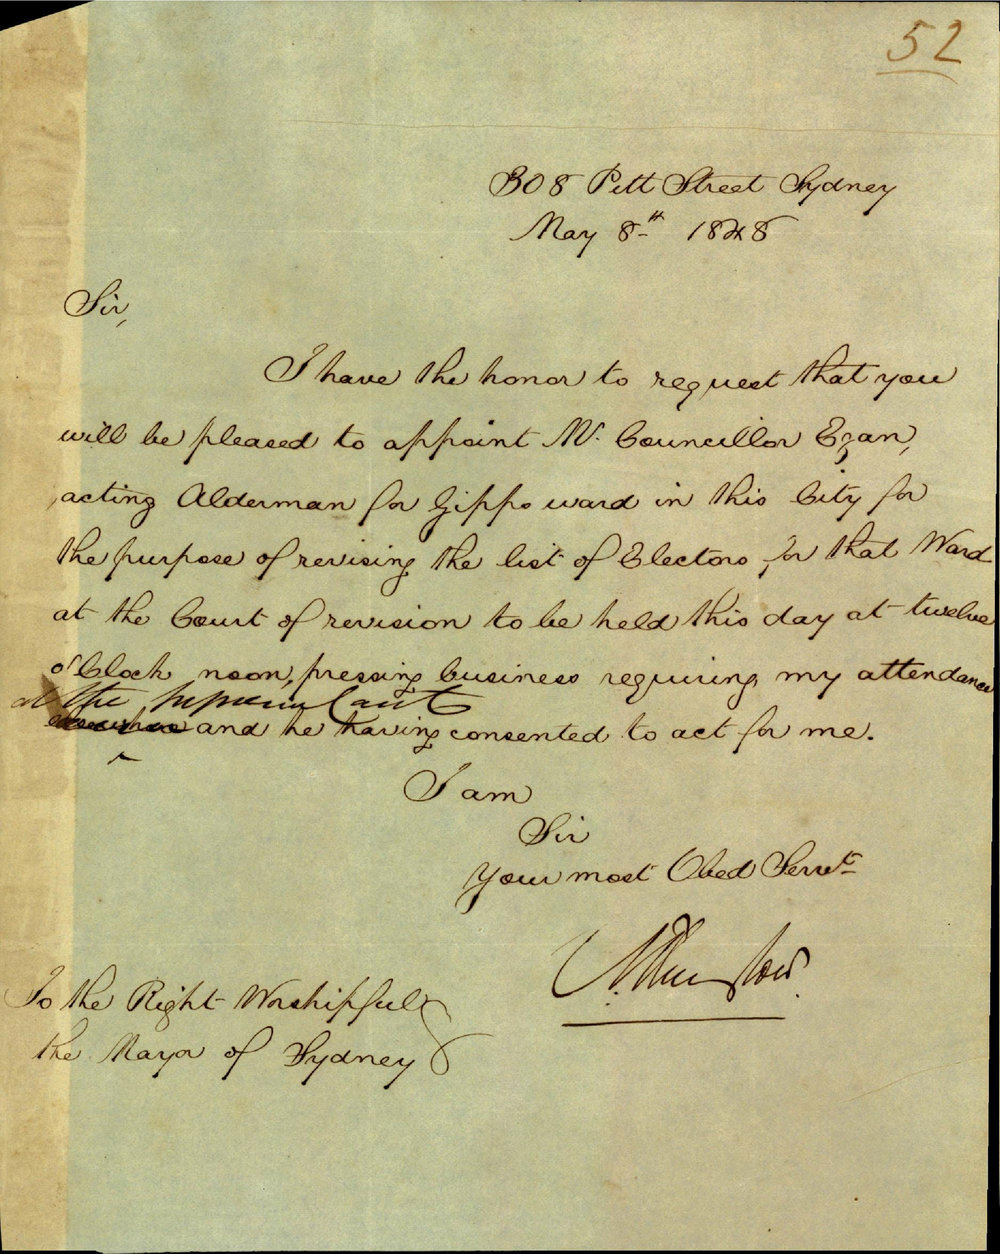 52
308 Pitt Street Sydney
May 8th 1848
Sir,
I have the honor to request that you
will be pleased to appoint Mr. Councillor Egan,
acting Alderman for Gipps ward in this City for
the purpose of revising the list of Electors for that Ward
at the Court of revision to be held this day at twelve
o'Clock noon, pressing business requiring my attendance
at the Supreme Court
and he having consented to act for me.
I am
Sir
Your most Obed Servt
To the Right Worshipful
the Mayor of Sydney